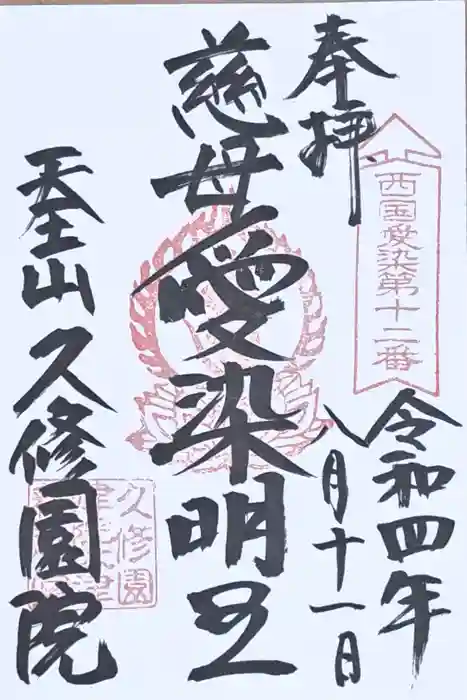 奉拝
西国愛染第十二番
令和四年
八月十一日
慈母愛染明王
天王山
久修園院
久修園